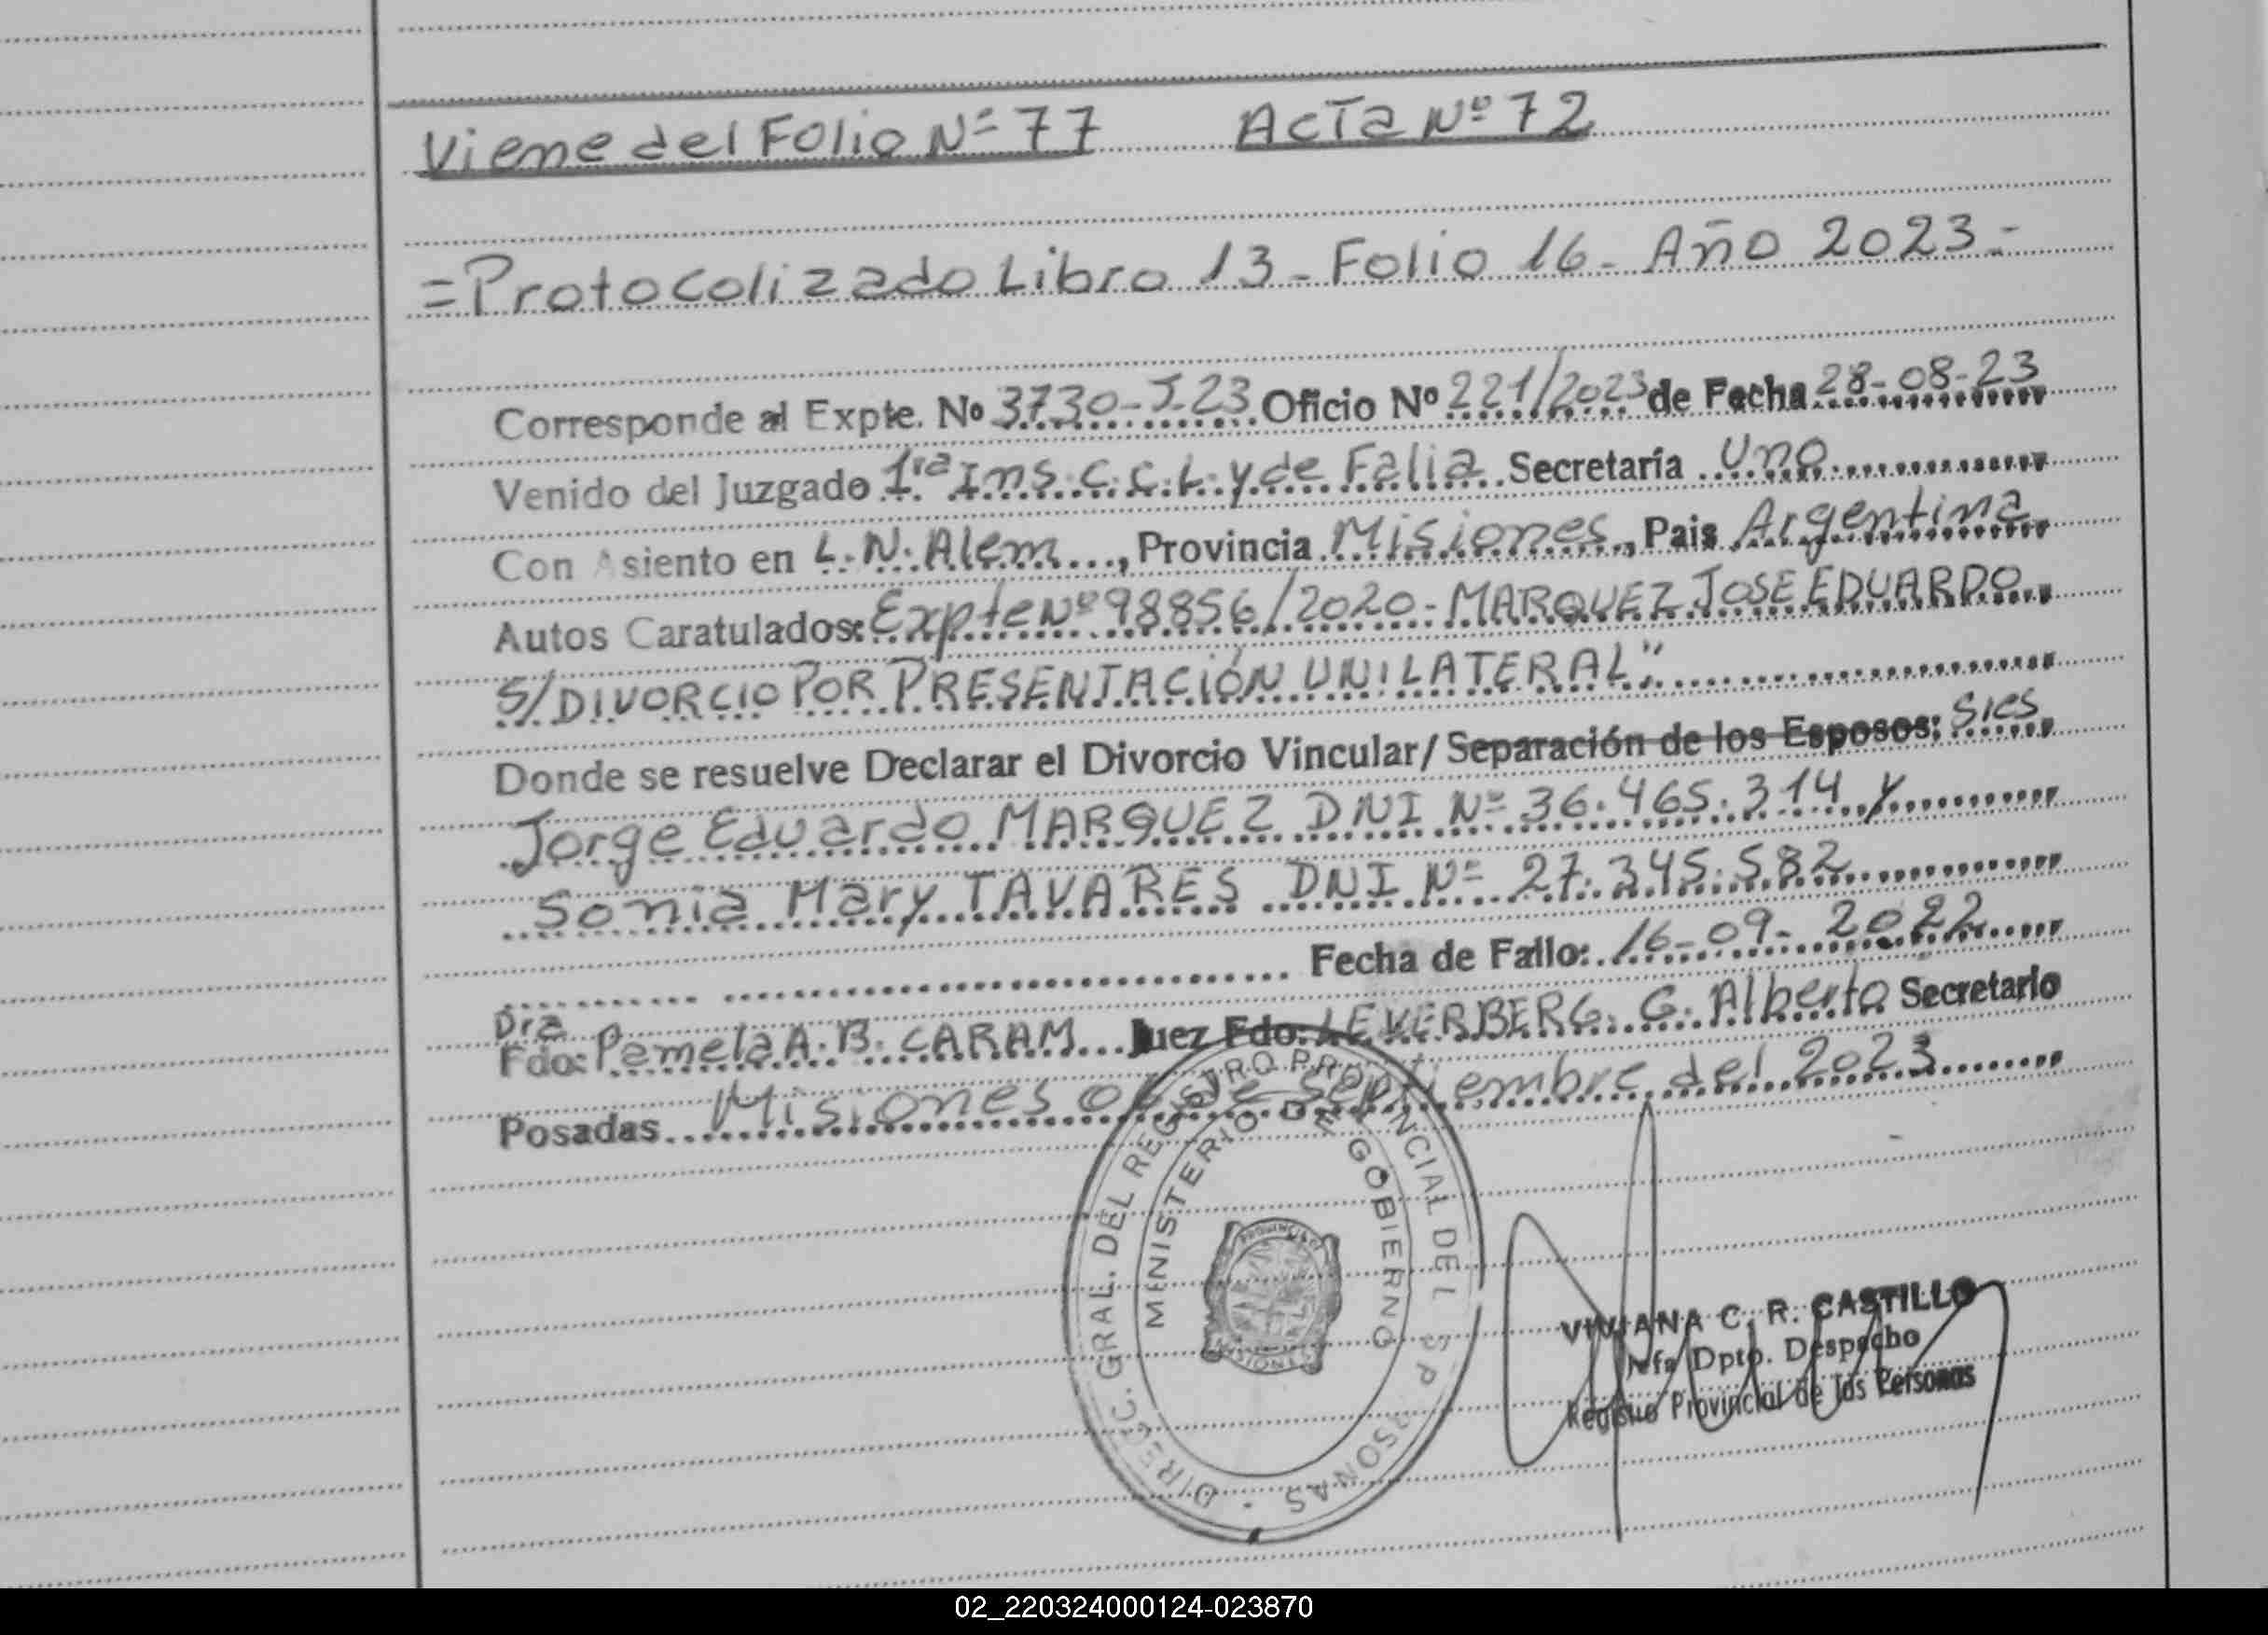 Viene del Folio Nº 77 Acta Nº 72
=Protocolizado Libro 13 - Folio 16 - Año 2023 =
Corresponde al Expte. Nº 3730-J-23 Oficio Nº 221/2023 de Fecha 28-08-23
Venido del Juzgado 1ra Ins. C.C.L. y de Falia Secretaría Uno
Con Asiento en L.N. Alem, Provincia Misiones, Pais Argentina
Autos Caratulados: Expte Nº 98856/2020 - MARQUEZ JOSE EDUARDO
S/DIVORCIO POR PRESENTACIÓN UNILATERAL"
Donde se resuelve Declarar el Divorcio Vincular/ Separación de los Esposos: Sres
Jorge Eduardo MARQUEZ DNI Nº 36.465.314 y
Sonia Mary TAVARES DNI Nº 27.345.582
Fecha de Fallo: 16-09-2022
Dra
Fdo: Pamela A.B. CARAM Juez Fdo: LEVERBERG G. Alberto Secretario
Posadas Misiones de Septiembre del 2023
DIREC. GRAL. DEL REGISTRO PROVINCIAL DE PERSONAS
MINISTERIO DE GOBIERNO
PROVINCIA
MISIONES
VIVIANA C. R. CASTILLO
Jefa Dpto. Despacho
Registro Provincial de las Personas
02_220324000124-023870